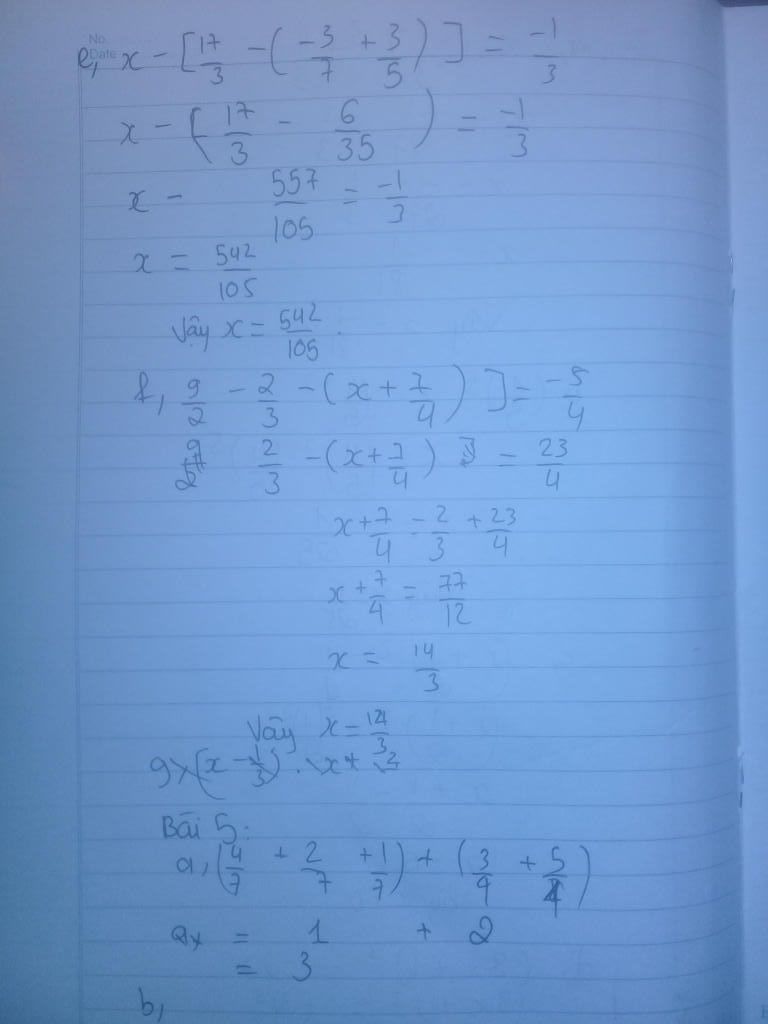 No.
Date
e, x - [17/3 - (-3/7 + 3/5)] = -1/3
x - (17/3 - 6/35) = -1/3
x - 557/105 = -1/3
x = 542/105
Vậy x = 542/105.
f, 9/2 - 2/3 - (x + 7/4)] = -5/4
2/3 - (x + 7/4) = 23/4
x + 7/4 = 2/3 + 23/4
x + 7/4 = 77/12
x = 14/3
Vậy x = 14/3
g, (x - 1/3) .
Bài 5:
a, (4/7 + 2/7 + 1/7) + (3/4 + 5/4)
= 1 + 2
= 3
b,